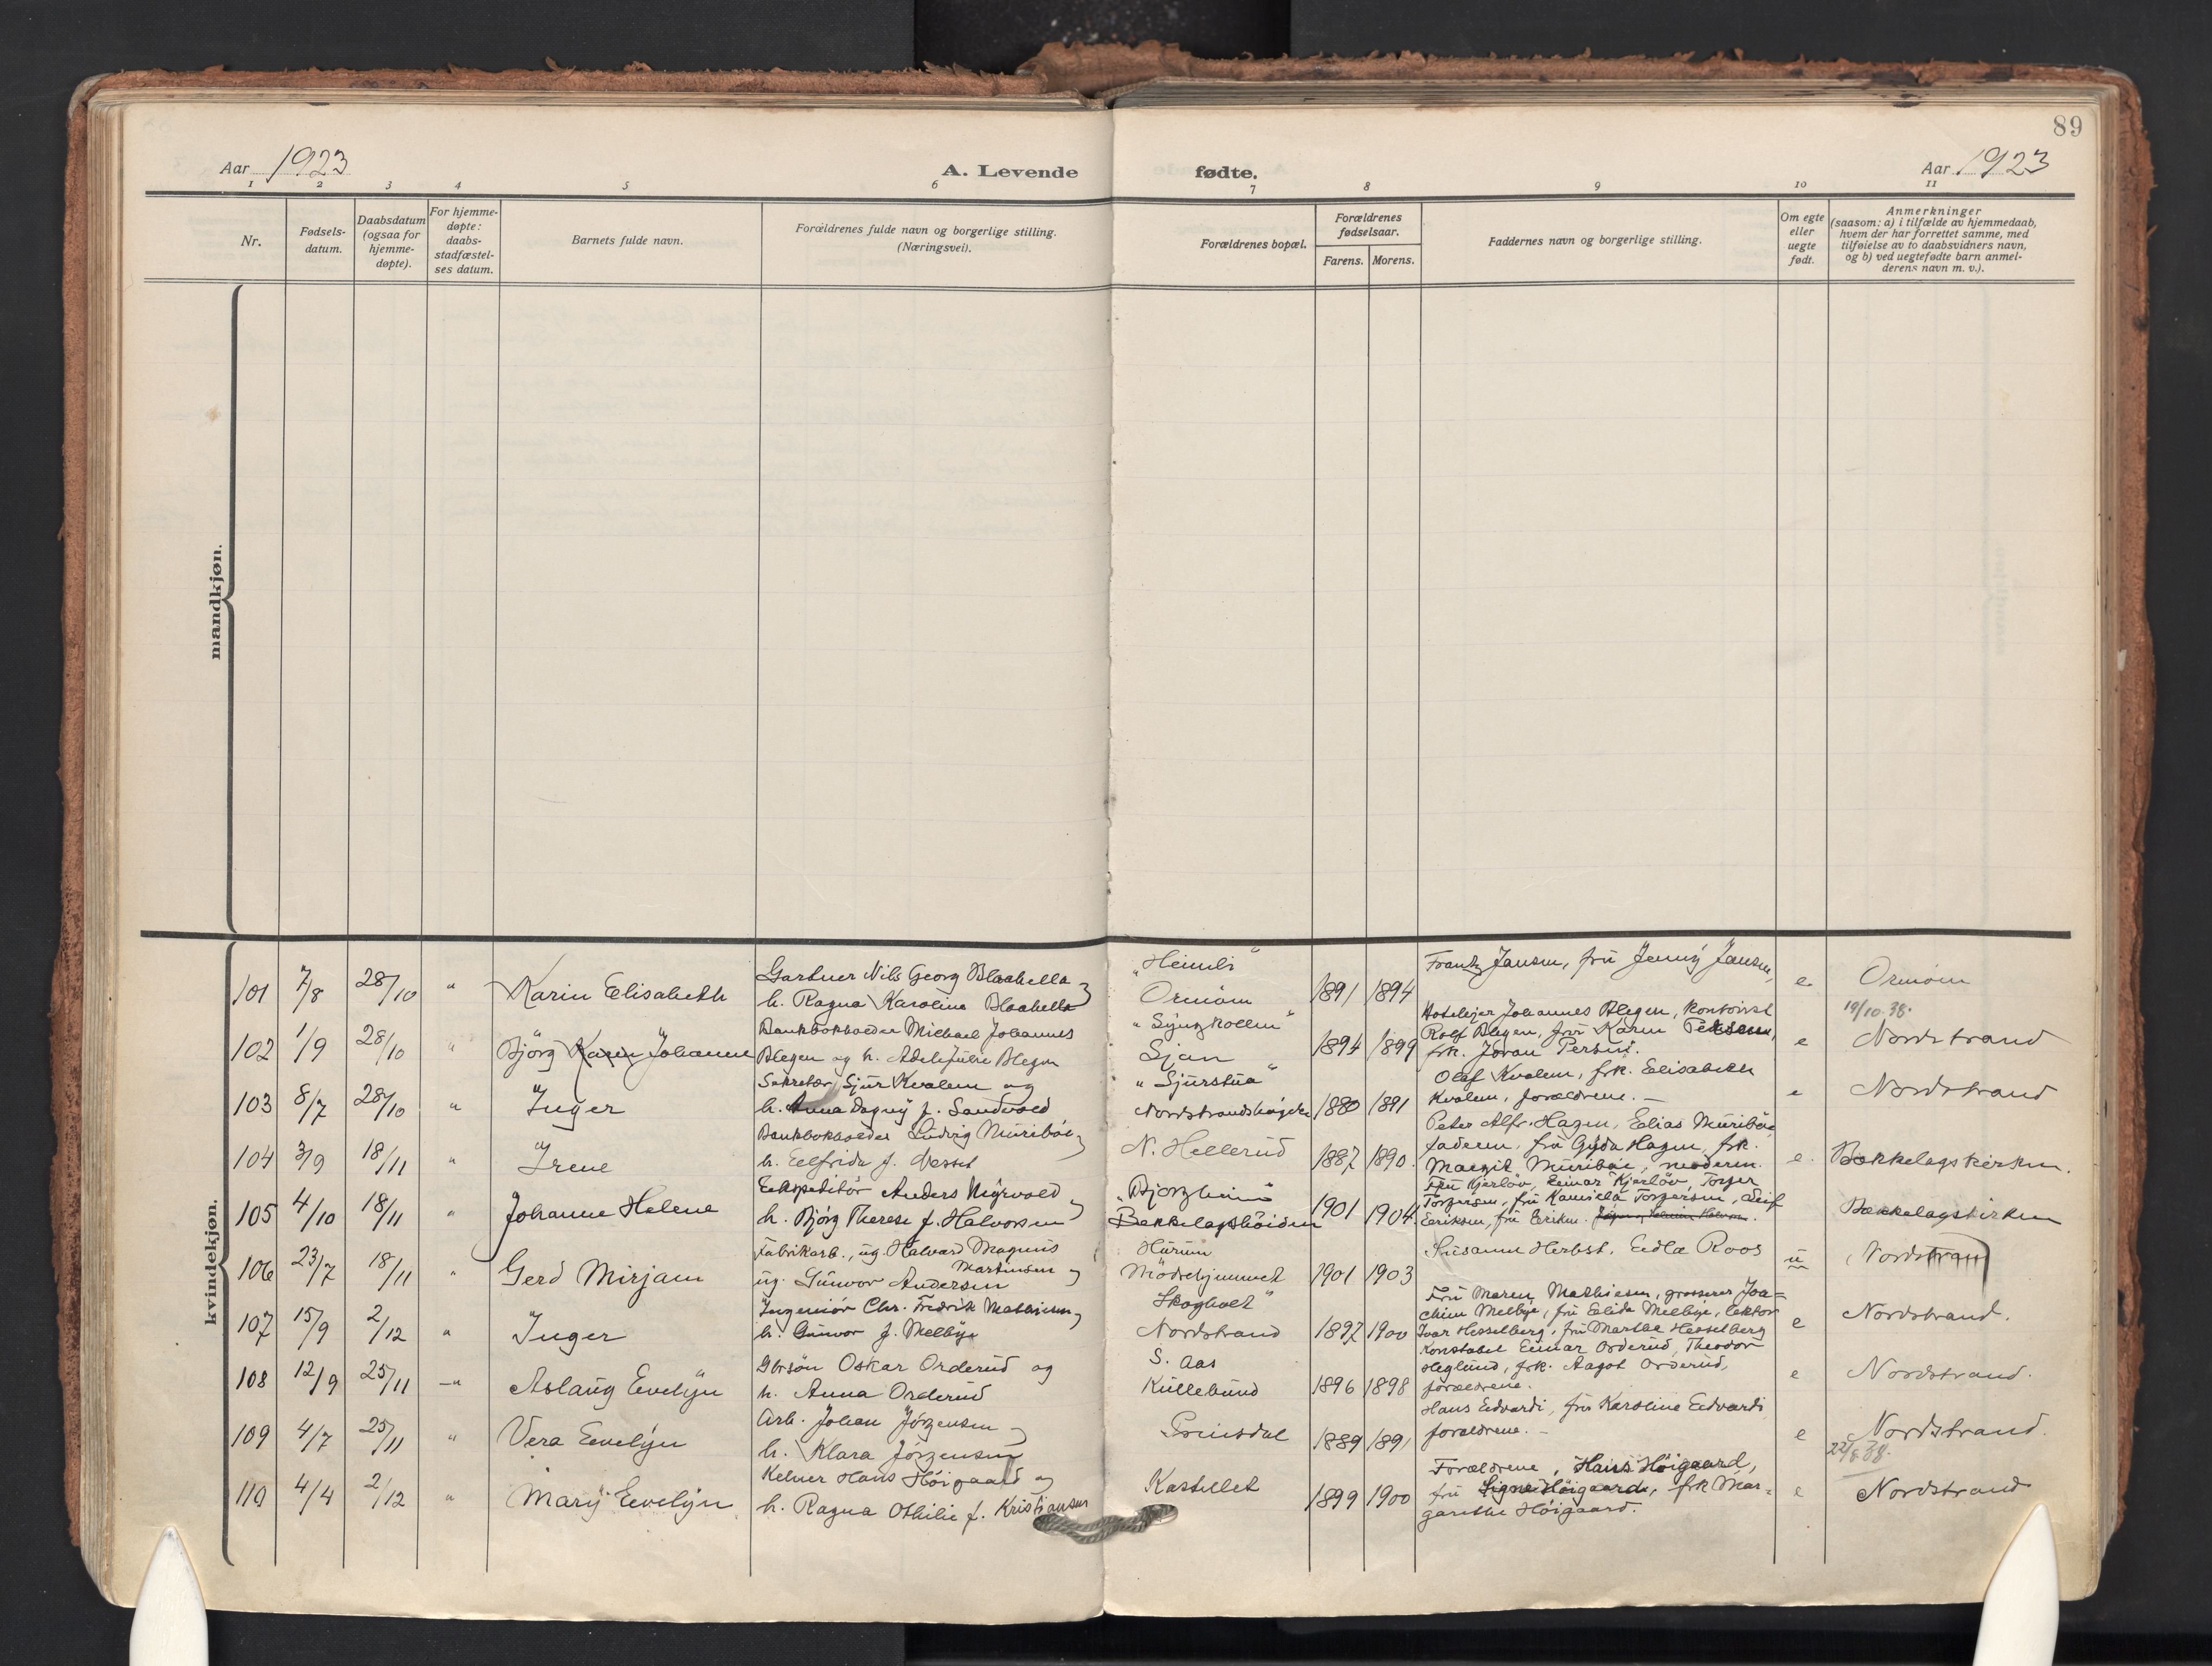 89
Aar 1923
A. Levende fødte.
Aar 1923
1 2 3 4 5 6 7 8 9 10 11
Nr.
Fødsels-
datum.
Daabsdatum
(ogsaa for
hjemme-
døpte).
For hjemme-
døpte:
daabs-
stadfæstel-
ses datum.
Barnets fulde navn.
Forældrenes fulde navn og borgerlige stilling.
(Næringsvei).
Forældrenes bopæl.
Forældrenes
fødselsaar.
Farens. Morens.
Faddernes navn og borgerlige stilling.
Om egte
eller
uegte
født.
Anmerkninger
(saasom: a) i tilfælde av hjemmedaab,
hvem der har forrettet samme, med
tilføielse av to daabsvidners navn,
og b) ved uegtefødte barn anmel-
derens navn m. v.).
mandkjøn.
kvindekjøn.
101 7/8 28/10 " Karin Elisabeth
Gartner Nils Georg Blaabella
h. Ragna Karoline Blaabella
"Heimli"
Ormöen
1891 1894
Frantz Jansen, frü Jenny Jansen,
e Ormöen
102 1/9 28/10 " Björg Karin Johanne
Bankbokholder Michael Johannes
Blegen og h. Adele Julie Blegen
"Synghollen"
Ljan
1894 1899
Hoteleier Johannes Blegen, kontorist
Rolf Blegen, frü Karen Pettersen,
frk. Joran Persen.
e
19/10.38.
Nordstrand
103 8/7 28/10 " Inger
Sekretær Sjur Kvalem og
h. Anna Dagny f. Sandvold
"Sjurstua"
Nordstrandshøgda
1880 1891
Olaf Kvalem, frk. Elisabeth
Kvalem, forældrene. –
e Nordstrand
104 3/9 18/11 " Irene
Bankbokholder Ludvig Müriböe
h. Elfrida f. Nesset
N. Hellerud
1887 1890
Peter Alfr. Hagen, Elias Müriböe,
faderen, frü Gyda Hagen, frk.
Margit Müriböe, moderen.
e. Bækkelagskirken.
105 4/10 18/11 " Johanne Helene
Ekspeditör Anders Myrvold
h. Björg Therese f. Halvorsen
"Bjorgheim"
Bækkelagshöiden
1901 1904
Frü Kjerlöv, Einar Kjerlöv, Torger
Torgersen, frü Kamilla Torgersen, Leif
Eriksen, frü Eriksen.
e
Bækkelagskirken
106 23/7 18/11 " Gerd Mirjam
Fabrikarb., ug. Halvard Magnus
Martinsen
ug. Günvor Andersen
Hürum
Mödrehjemmet
1901 1903
Susanne Herbst. Edla Roos
u Nordstrand
107 15/9 2/12 " Inger
Ingeniör Chr. Fredrik Mathiesen
h. Günvor f. Melbye
Skogholt"
Nordstrand
1897 1900
Frü Maren Mathiesen, grosserer Joa=
chim Melbye, frü Elida Melbye, lektor
Ivar Hesselberg, frü Marthe Hesselberg
e Nordstrand.
108 12/9 25/11 –" Aslaüg Evelyn
Gbrsön Oskar Orderüd og
h. Anna Orderüd
S. Aas
Kullebund
1896 1898
Konstabel Einar Orderüd, Theodor
Heglünd, frk. Aagot Orderüd,
forældrene.
e Nordstrand.
109 4/7 25/11 " Vera Evelyn
Arb. Johan Jörgensen
h. Klara Jörgensen
Prinsdal
1889 1891
Hans Edvardi, frü Karoline Edvardi
forældrene. –
e Nordstrand.
110 4/4 2/12 " Mary Evelyn
Kelner Hans Höigaard og
h. Ragna Othilie f. Kristiansen
Kastellet
1899 1900
Forældrene, Hans Höigaard,
frü Signe Höigaard, frk Mar=
garethe Höigaard.
e
22/8.38.
Nordstrand